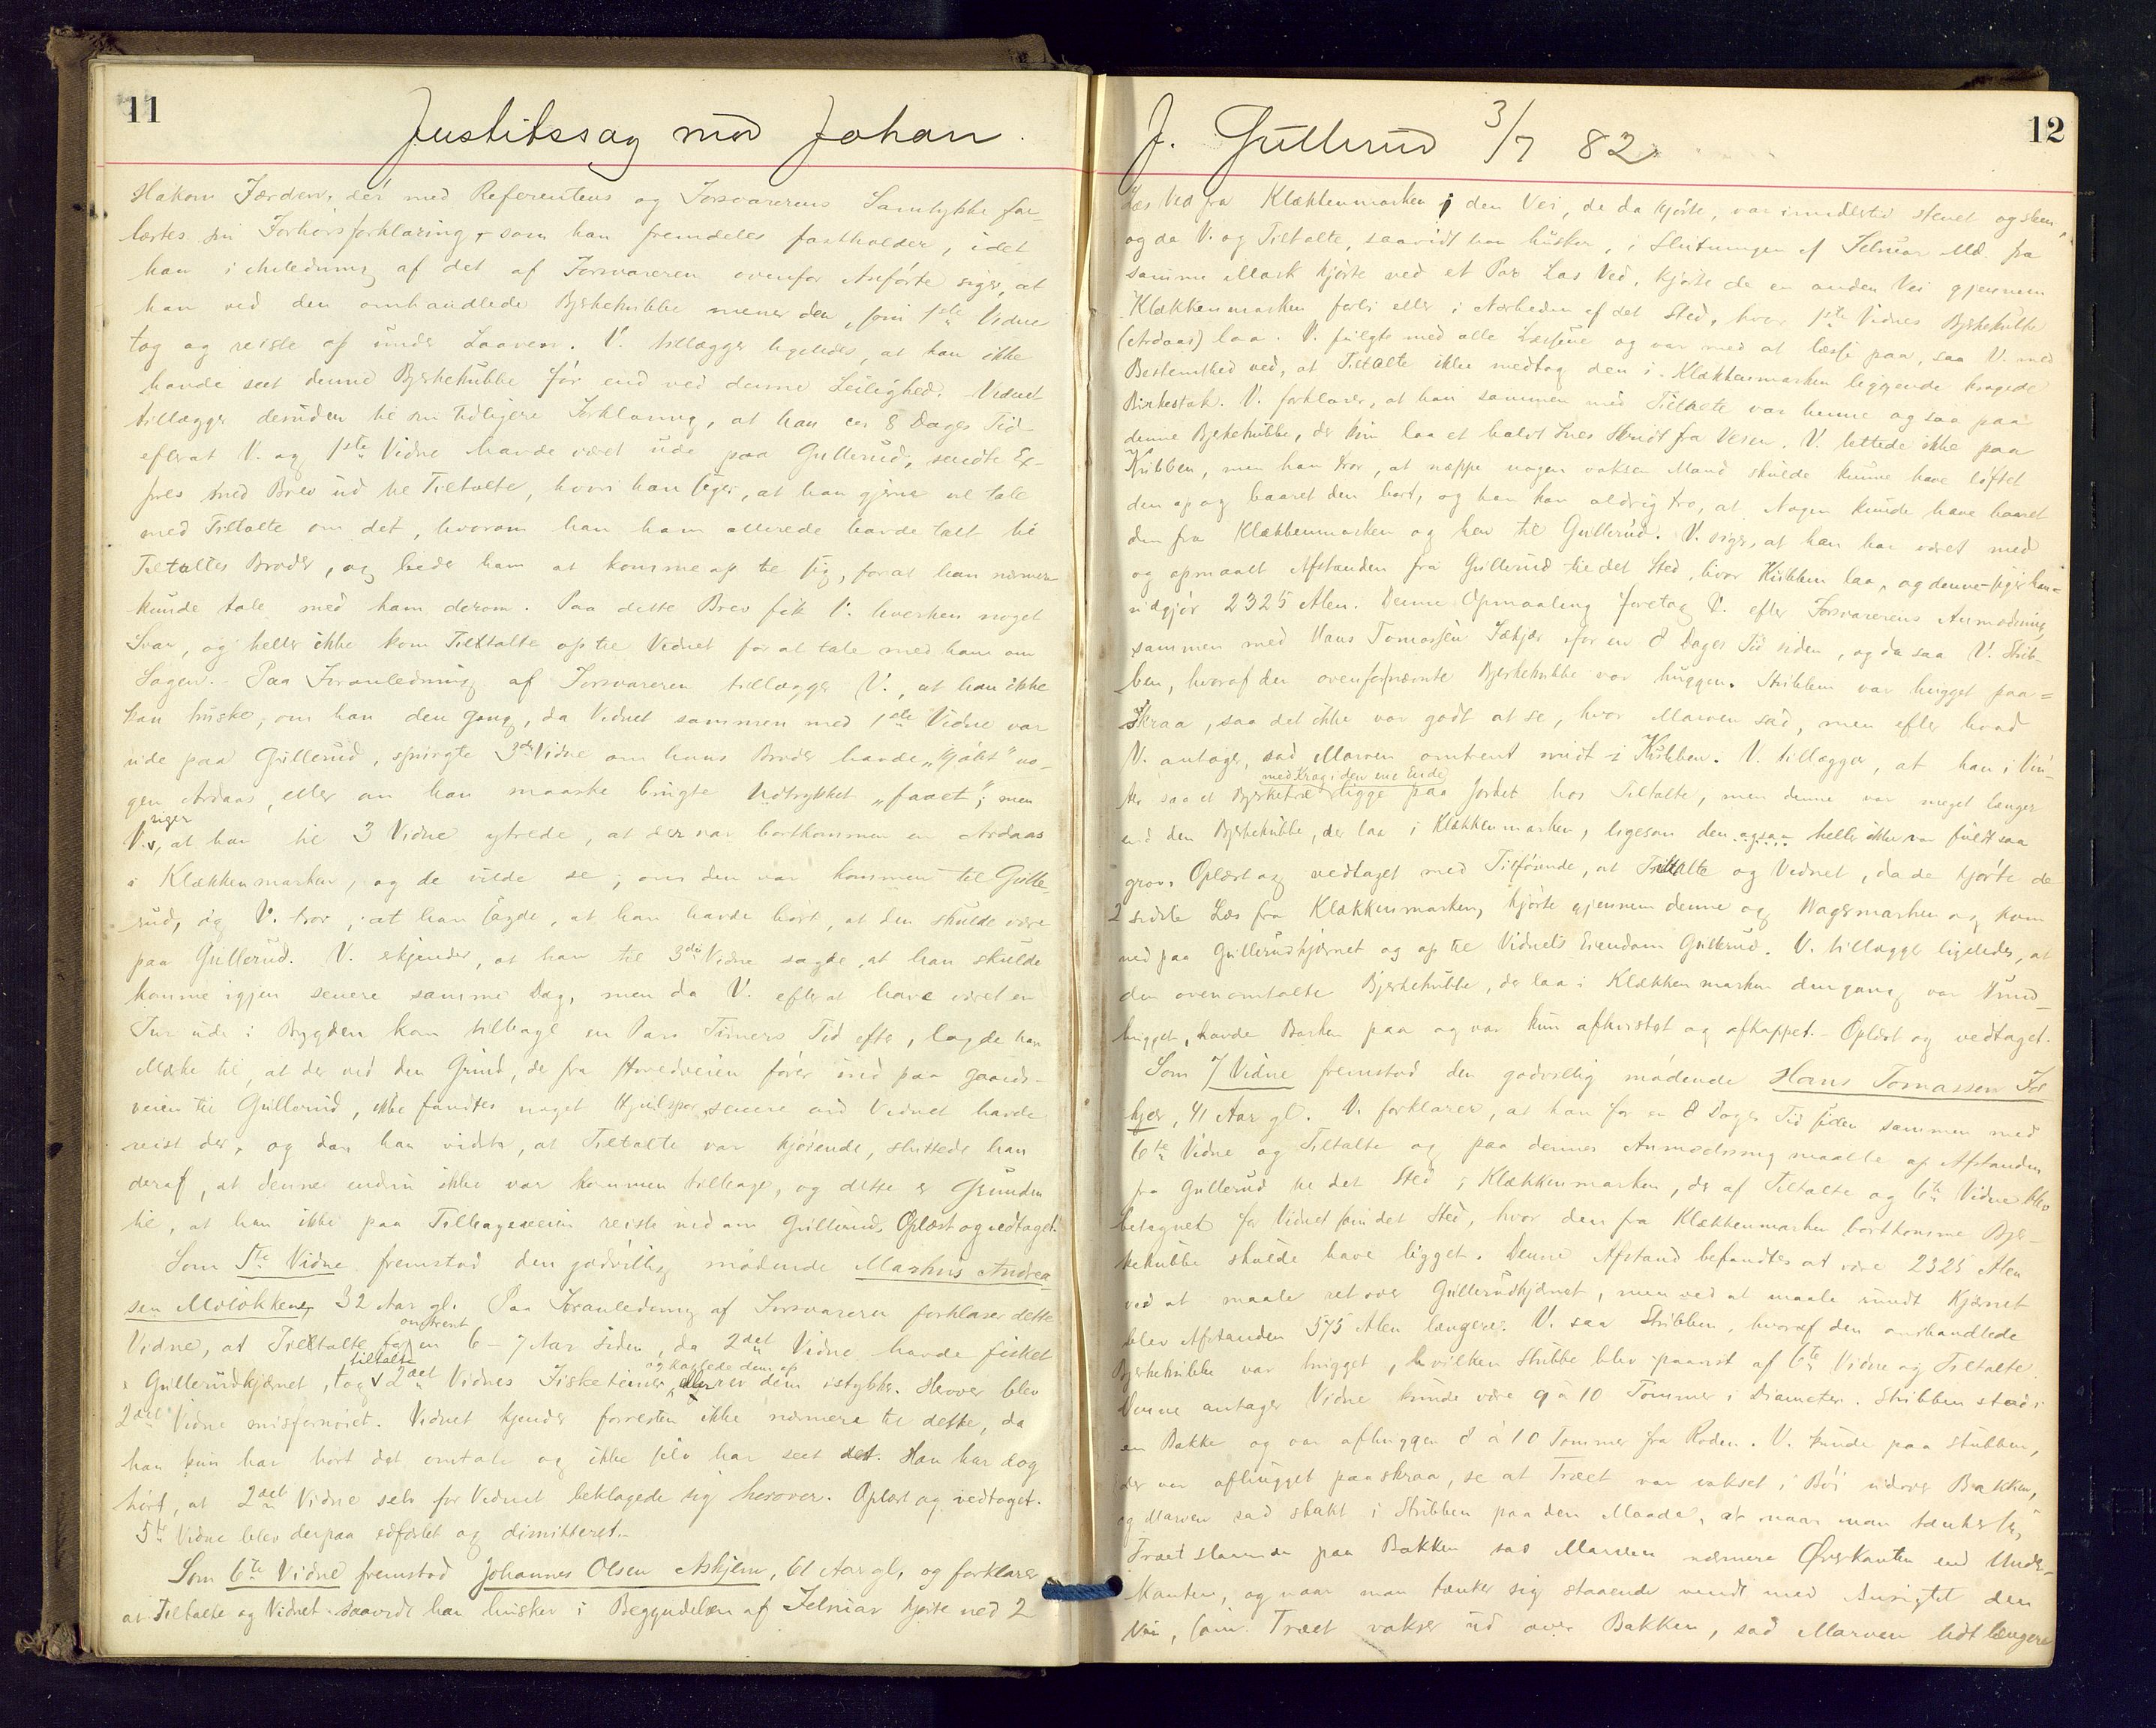 11
Justitssag mod Johan
Hakon Jærden, der med Referentens og Forsvarerens Samtykke fore-
læstes sin Forhørsforklaring, som han fremdeles fastholder, idet
han i Anledning af det af Forsvareren ovenfor Anførte siger, at
han ved den omhandlede Bjerkekubbe mener den, som 1ste Vidne
tog og reiste op under Laaven. V. tillægger ligeledes, at han ikke
havde seet denne Bjerkekubbe før end ved denne Leilighed. Vidnet
tillægger desuden til sin tidligere Forklaring, at han ca 8 Dages Tid
efterat V. og 1ste Vidne havde været ude paa Gullerud, sendte Ex-
pres med Brev ud til Tiltalte, hvori han siger, at han gjerne vil tale
med Tiltalte om det, hvorom han ham allerede havde talt til
Tiltaltes Broder, og beder ham at komme op til sig, forat han nærmere
kunde tale med ham derom. Paa dette Brev fik V. hverken noget
Svar, og heller ikke kom Tiltalte op til Vidnet for at tale med ham om
Sagen. - Paa Foranledning af Forsvareren tillægger V., at han ikke
kan huske, om han den Gang, da Vidnet sammen med 1ste Vidne var
ude paa Gullerud, spurgte 3die Vidne om hans Broder havde "kjøbt" no-
gen Ardaas, eller om han maaske brugte Udtrykket "faaet"; men
V. siger, at han til 3 Vidne ytrede, at der var bortkommen en Ardaas
i Klækkenmarken, og de vilde se, om den var kommen til Gulle-
rud, og V. tror, at han sagde, at han havde hørt, at den skulde være
paa Gullerud. V. erkjender, at han til 3die Vidne sagde, at han skulde
komme igjen senere samme Dag, men da V. efterat have været en
Tur ude i Bygden kom tilbage en Pars Timers Tid efter, lagde han
Mærke til, at der ved den Grind, der fra Hovedveien fører ind paa Gaards-
veien til Gullerud, ikke fandtes noget Hjulspor senere end Vidnet havde
reist der, og da han vidste, at Tiltalte var kjørende, sluttede han
deraf, at denne endnu ikke var kommen tilbage, og dette er Grunden
til, at han ikke paa Tilbageveien reiste ned om Gullerud. Oplæst og vedtaget.
Som 5te Vidne fremstod den godvillig mødende Markus Andrea-
sen Moløkken, 32 Aar gl. Paa Foranledning af Forsvareren forklarer dette
Vidne, at Tiltalte for omtrent en 6 - 7 Aar siden, da 2det Vidne havde fisket
i Gullerudkjærnet, tog tiltalte 2det Vidnes Fisketeiner og kappede dem op eller rev dem istykker. Herover blev
2det Vidne misfornøiet. Vidnet kjender forresten ikke nærmere til dette, da
han kun har hørt det omtale og ikke selv har seet det. Han har dog
hørt, at 2det Vidne selv for Vidnet beklagede sig herover. Oplæst og vedtaget.
5te Vidne blev derpaa edfæstet og dimitteret.
Som 6te Vidne fremstod Johannes Olsen Askjem, 61 Aar gl, og forklarer
at Tiltalte og Vidnet saavidt han husker i Begyndelsen af Februar kjørte ned 2
12
J. Gullerud 3/7 82
Læs Ved fra Klækkenmarken; den Vei, de da kjørte, var imidlertid stenet og slem,
og da V. og Tiltalte, saavidt han husker, i Slutningen af Februar Md. fra
samme Mark kjørte ned et Par Læs Ved, kjørte de en anden Vei gjennem
Klækkenmarken forbi eller i Nærheden af det Sted, hvor 1ste Vidnes Bjerkekubbe
(Ardaas) laa. V. fulgte med alle Læssene og var med at læsse paa, saa V. med
Bestemthed ved, at Tiltalte ikke medtog den i Klækkenmarken liggende kragede
Birkestok. V. forklarer, at han sammen med Tiltalte var henne og saa paa
denne Bjerkekubbe, der kun laa et halvt Snes Skridt fra Veien. V. lettede ikke paa
Kubben, men han tror, at neppe nogen voksen Mand skulde kunne have løftet
den op og baaret den bort, og han kan aldrig tro, at Nogen kunde have baaret
den fra Klækkenmarken og hen til Gullerud. V. siger, at han har været med
og opmaalt Afstanden fra Gullerud til det Sted, hvor Kubben laa, og denne - siger han -
udgjør 2325 Alen. Denne Opmaaling foretog V. efter Forsvarerens Anmodning
sammen med Hans Tomassen for en 8 Dages Tid siden, og da saa V. Stub-
ben, hvoraf den ovenfornævnte Bjerkekubbe var huggen. Stubben var hugget paa-
skraa, saa det ikke var godt at se, hvor Marven sad, men efter hvad
V. antager, sad Marven omtrent midt i Kubben. V. tillægger, at han i Vin-
ter saa et Bjerketræ med Krog i den ene Ende ligge paa Jordet hos Tiltalte, men denne var meget længer
end den Bjerkekubbe, der laa i Klækkenmarken, ligesom den ogsaa heller ikke var fuldt saa
grov. Oplæst og vedtaget med Tilføiende, at Tiltalte og Vidnet, da de kjørte de
2 sidste Læs fra Klækkenmarken, kjørte gjennem denne og Hagermarken og kom
ned paa Gullerudkjærnet og op til Vidnets Eiendom Gullerud. V. tillægger ligeledes, at
den ovenomtalte Bjerkekubbe, der laa i Klækkenmarken dengang var
hugget, havde Barken paa og var kun afkvistet og afkappet. - Oplæst og vedtaget.
Som 7 Vidne fremstod den godvillig mødende Hans Tomassen
kjær, 41 Aar gl. V. forklarer, at han for en 8 Dages Tid siden sammen med
6te Vidne og Tiltalte og paa dennes Anmodning maalte op Afstanden
fra Gullerud til det Sted i Klækkenmarken, der af Tiltalte og 6te Vidne blev
betegnet for Vidnet som det Sted, hvor den fra Klækkenmarken bortkomne Bjer-
kekubbe skulde have ligget. Denne Afstand befandtes at være 2325 Alen
ved at maale ret over Gullerudkjærnet, men ved at maale rundt Kjærnet
blev Afstanden 575 Alen længere. V. saa Stubben, hvoraf den omhandlede
Bjerkekubbe var hugget, hvilken Stubbe blev paavist af 6te Vidne og Tiltalte.
Denne antager Vidne kunde være 9 à 10 Tommer i Diameter. Stubben stod i
en Bakke og var afhuggen 8 à 10 Tommer fra Roden. V. kunde paa Stubben,
der var afhugget paaskraa, se at Træet var vokset i Bøi udover Bakken,
og Marven sad skakt i Stubben paa den Maade, at naar man tænker sig
Træet staaende paa Bakken sad Marven nærmere Øverkanten end Under-
kanten, og naar man tænker sig staaende vendt med Ansigtet den
Vei, som Træet vokser ud over Bakken, sad Marven lidt længere